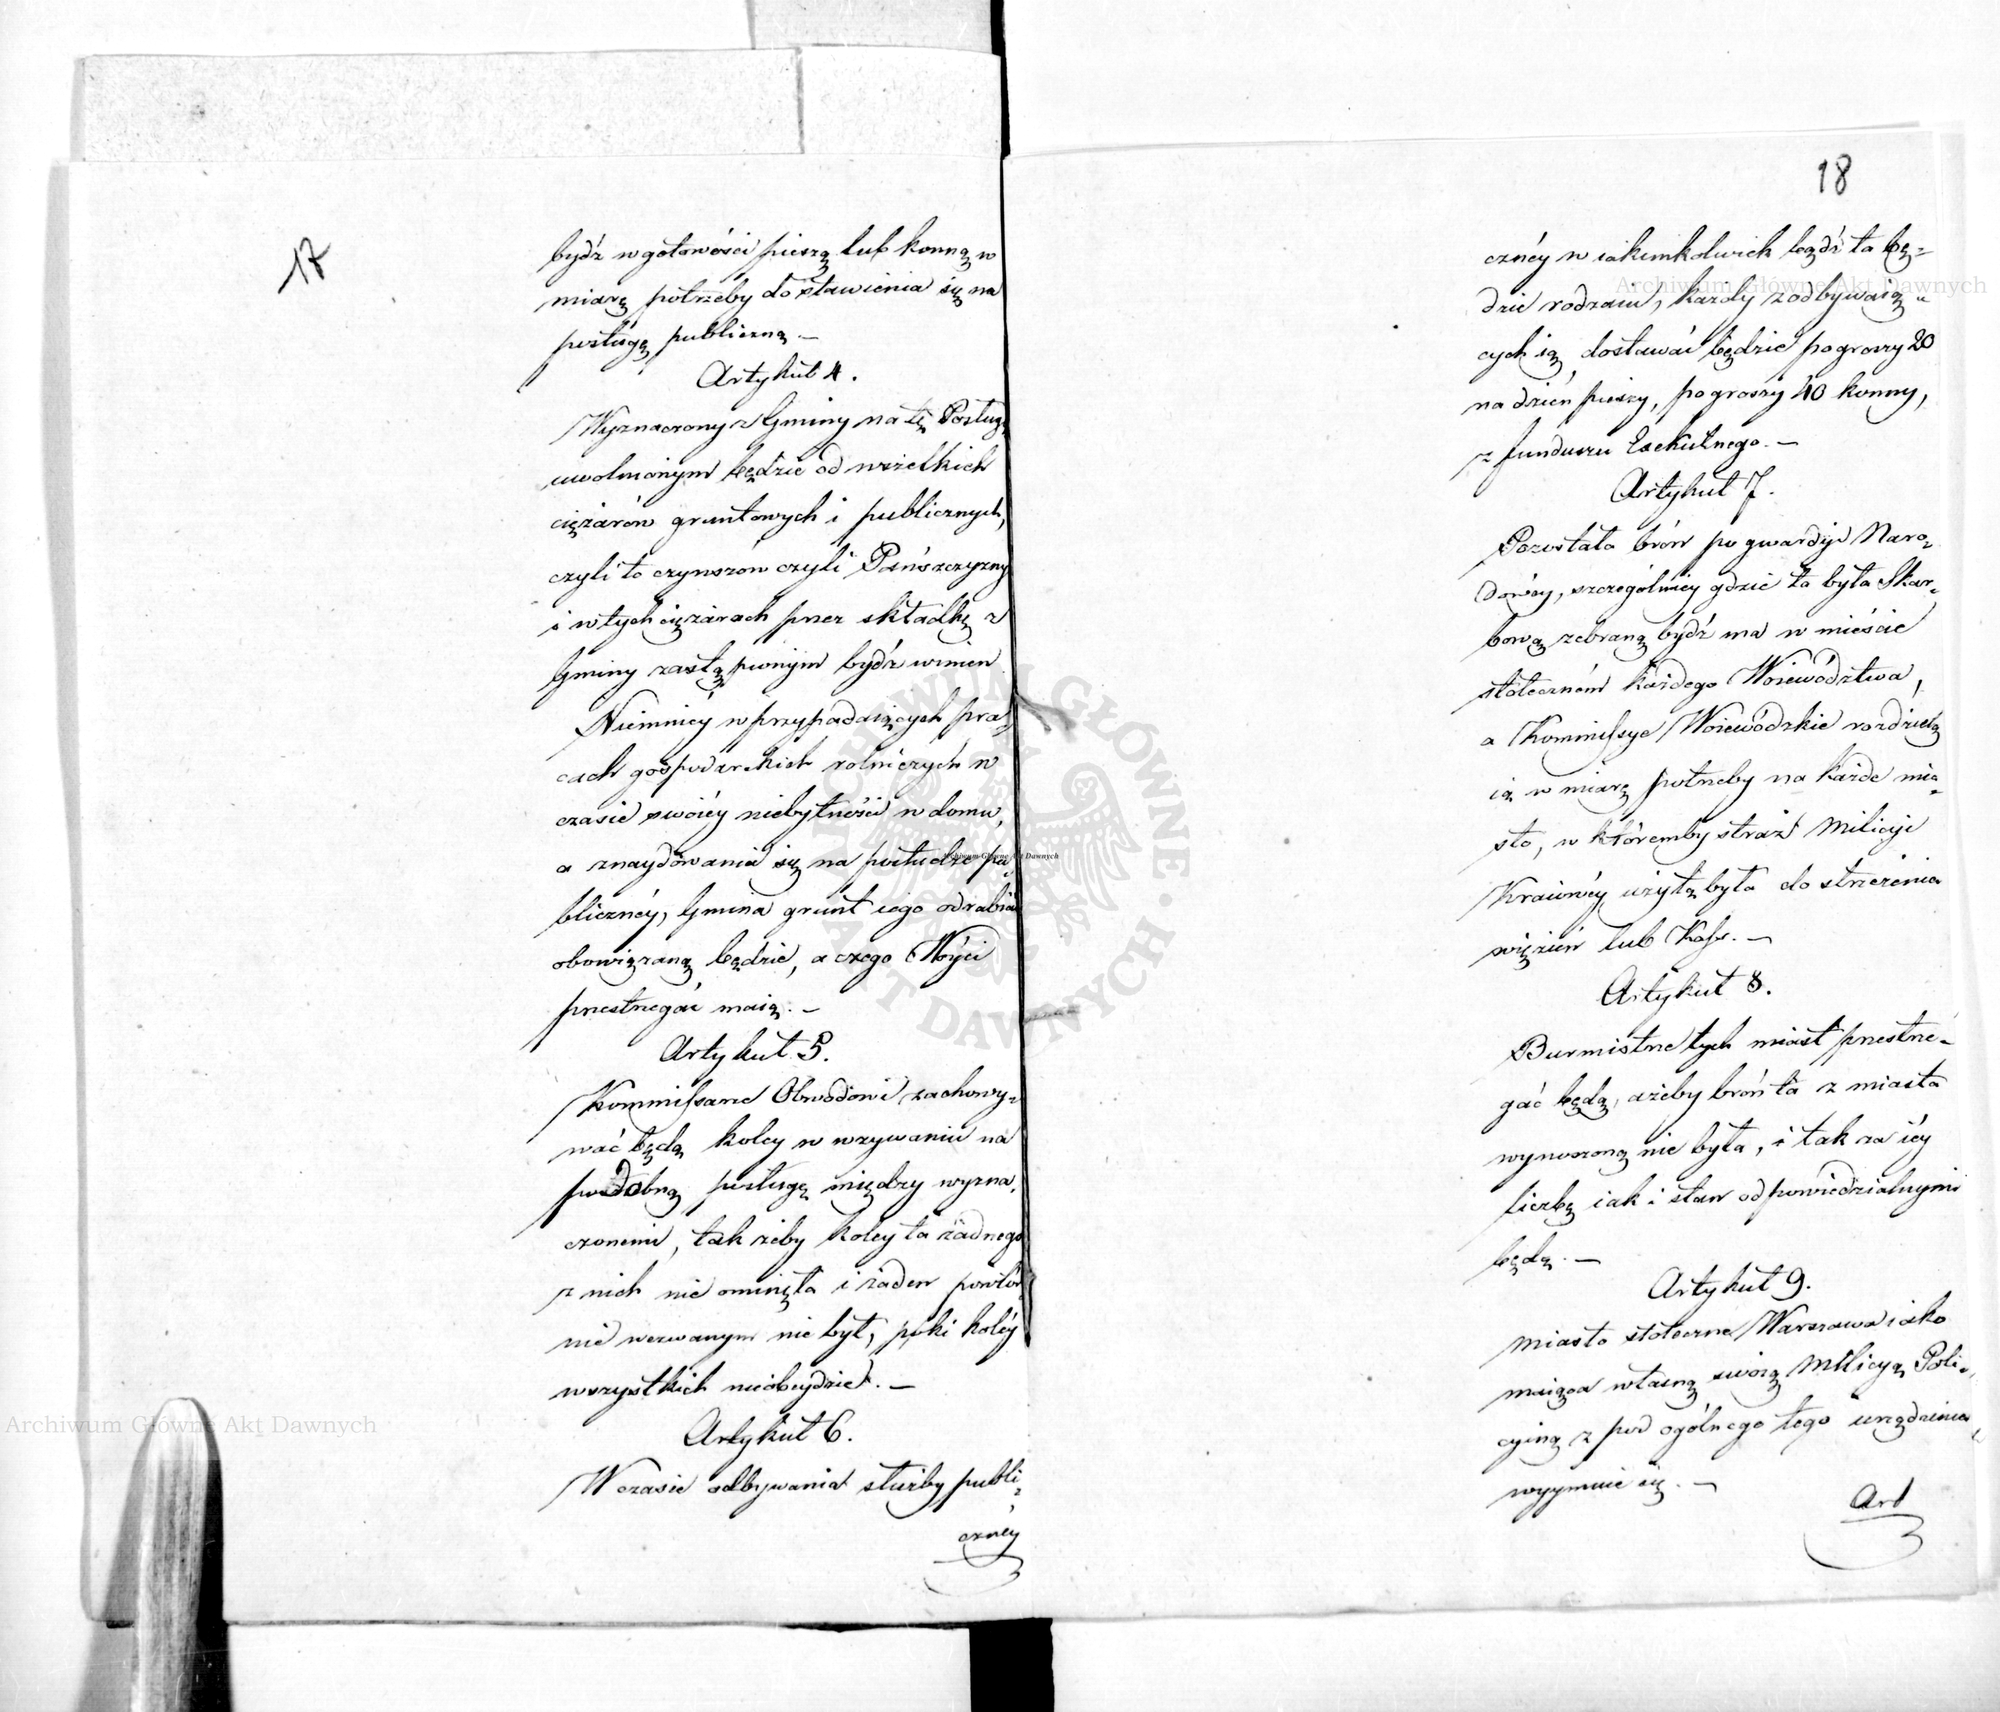 17
bydź w gotowości pieszą lub konną w
miarę potrzeby do stawienia się na
posługę publiczną. —
Artykuł 4.
Wyznaczony z Gminy na tę Posługę
uwolnionym będzie od wszelkich
ciężarów gruntowych i publicznych,
czyli to czynszów czyli Pańszczyzny
i w tych ciężarach przez składkę z
Gminy zastąpionym bydź winien
Niemniéy w przypadaiących pra-
cach gospodarskich rolniczych w
czasie swoiéy niebytności w domu,
a znaydowania się na posłudze pu-
blicznéy, Gmina grunt iego odrabiać
obowiązaną będzie, a czego Wóyci
przestrzegać maią. —
Artykuł 5.
Kommissarze Obwodowi zachowy-
wać będą koley w wzywaniu na
podobną posługę między wyzna-
czonemi, tak żeby koley ta żadnego
z nich nie ominęła i żaden powtór-
nie wezwanym nie był, póki koléy
wszystkich nieobeydzie. —
Artykuł 6.
W czasie odbywania służby publi-
cznéy
18
cznéy w iakimkolwiek bądź ta bę-
dzie rodzaiu, każdy z odbywaią-
cych ią dostawać będzie po groszy 20
na dzień pieszy, po groszy 40 konny,
z funduszu Exekutnego. —
Artykuł 7.
Pozostała broń po gwardyi Naro-
dowéy, szczególniéy gdzie ta była Skar-
bową zebraną bydź ma w mieście
stołeczném każdego Woiewództwa,
a Kommissye Woiewódzkie rozdzielą
ią w miarę potrzeby na każde mia-
sto, w którémby straż Milicyi
Kraiowéy użytą była do strzeżenia
więzień lub Kass. —
Artykuł 8.
Burmistrze tych miast przestrze-
gać będą, ażeby broń ta z miasta
wynoszoną nie była, i tak za iéy
liczbę iak i stan odpowiedzialnymi
będą. —
Artykuł 9.
Miasto stołeczne Warszawa iako
maiąca własną swoią Milicyą Poli-
cyiną z pod ogólnego tego urządzenia
wyymuie się. —
Art
Archiwum Główne Akt Dawnych
Archiwum Główne Akt Dawnych
Archiwum Główne Akt Dawnych
ARCHIWUM GŁÓWNE · AKT DAWNYCH ·